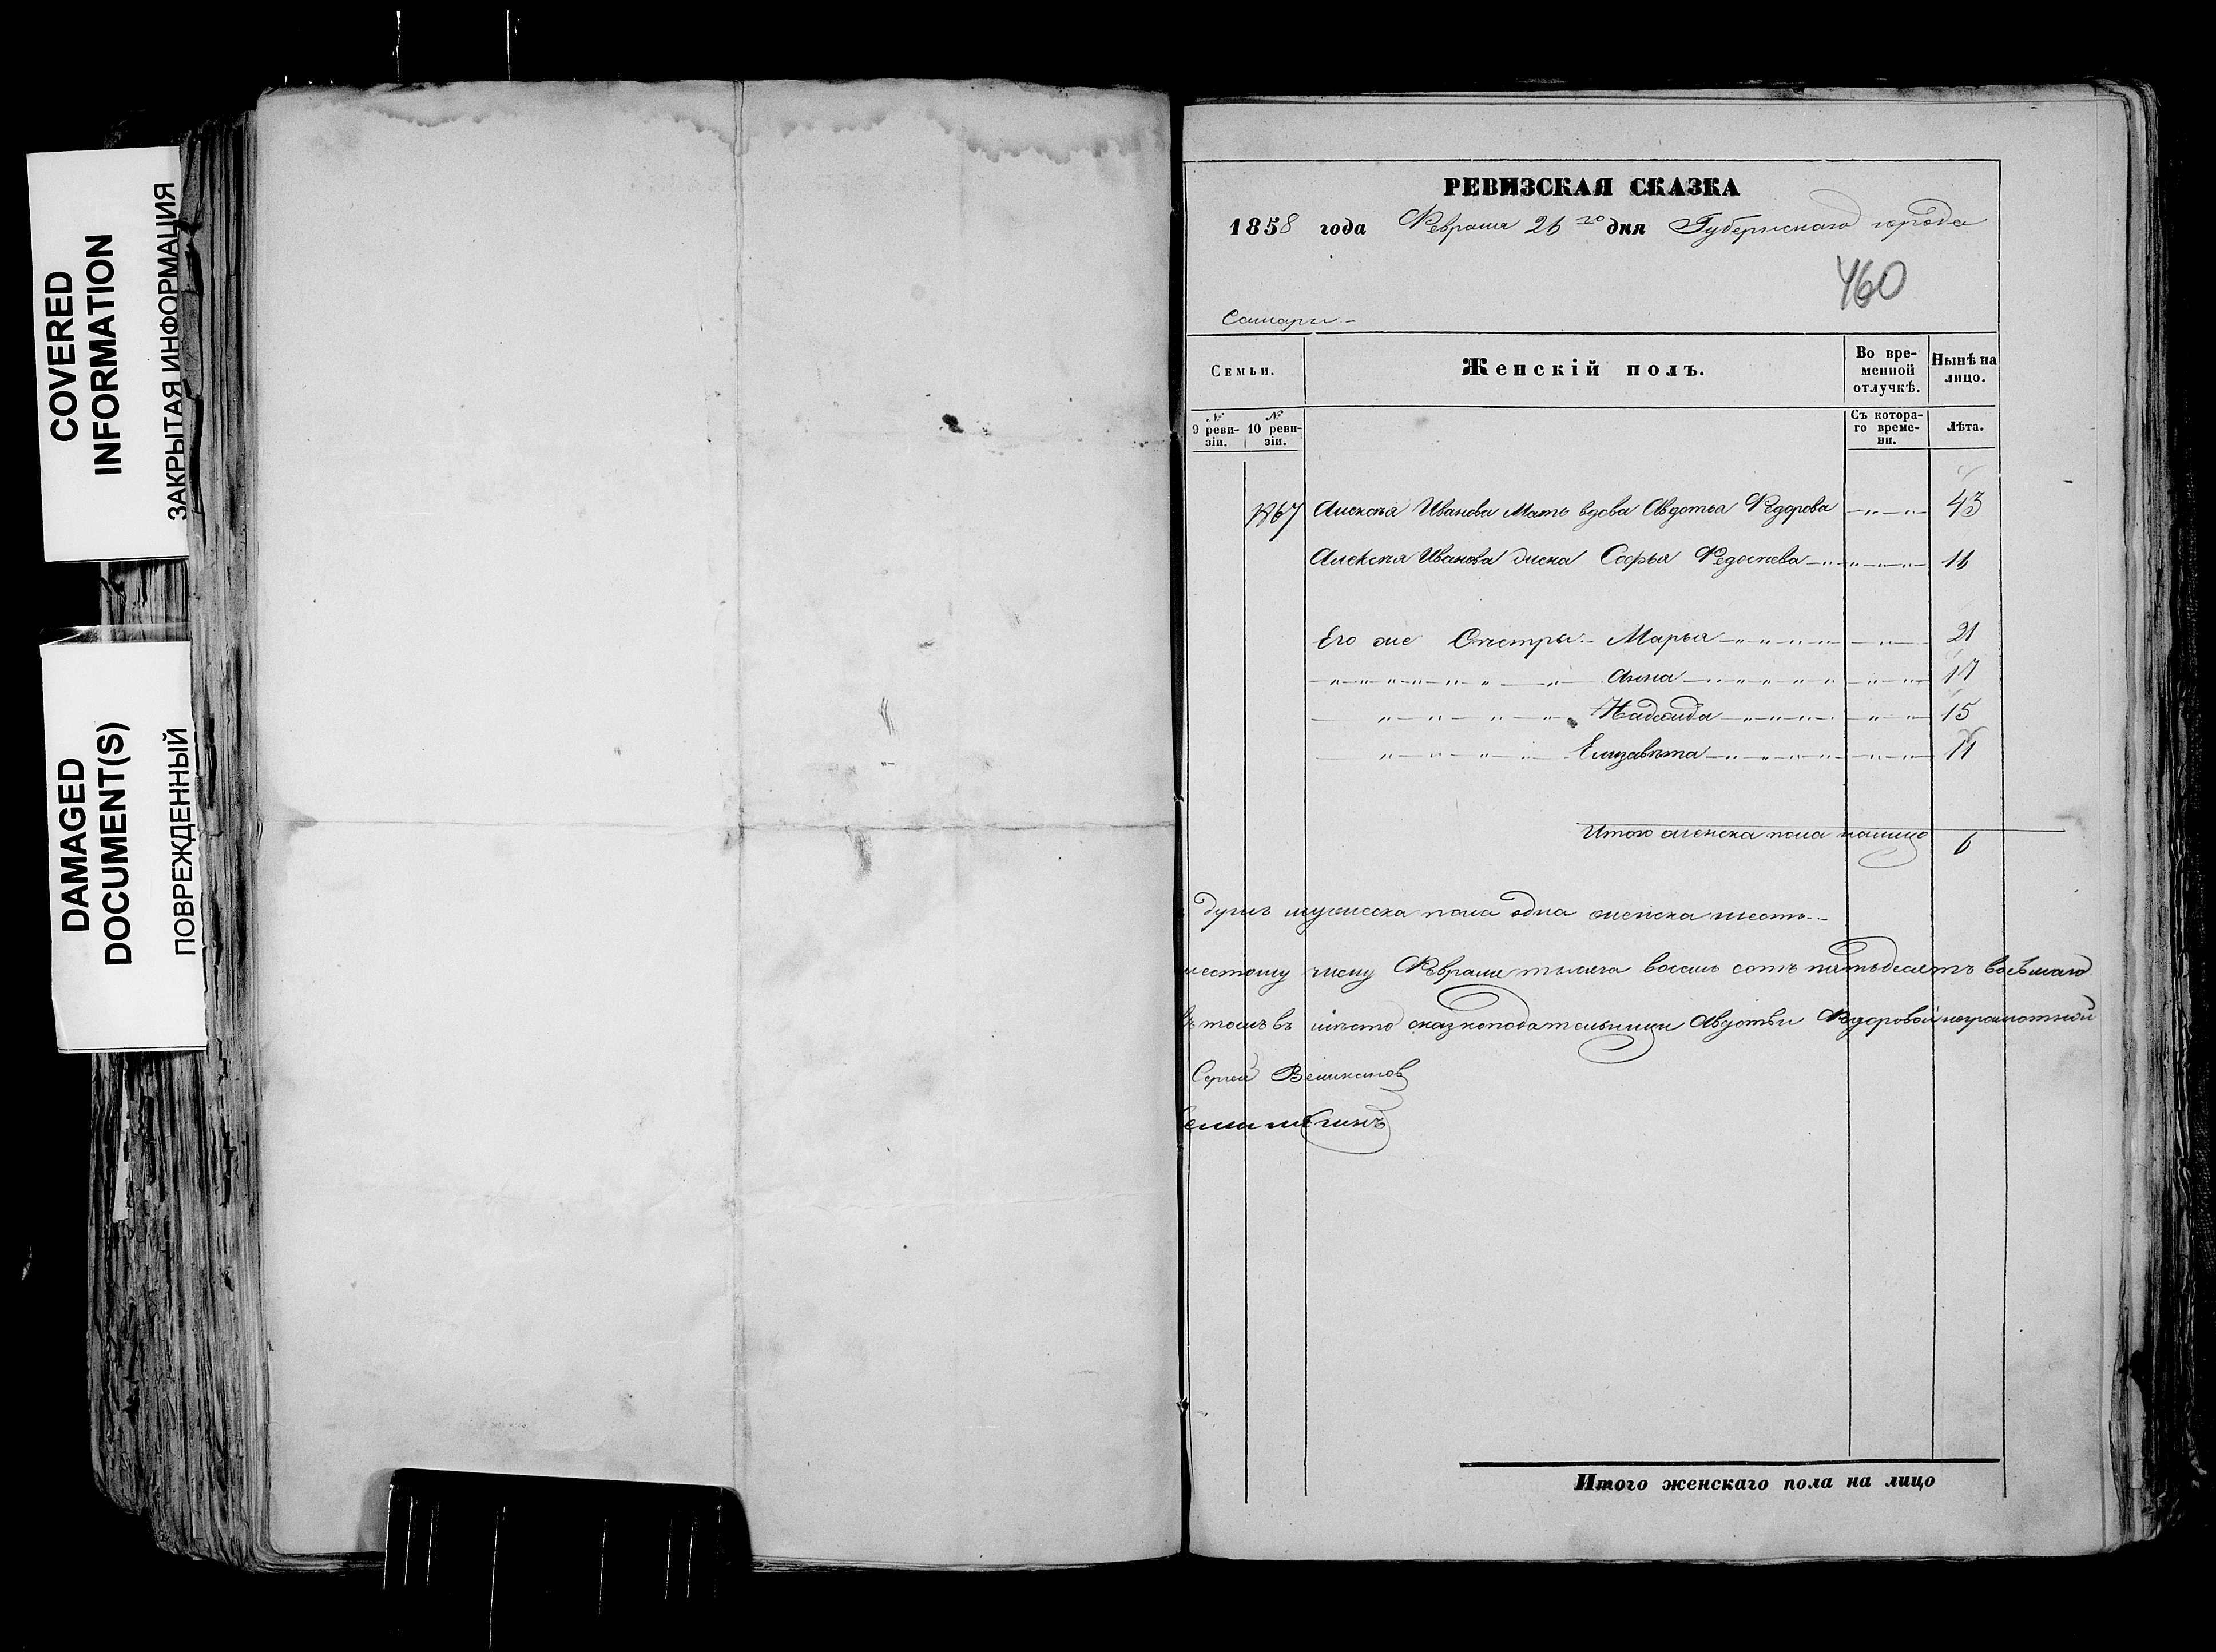 COVERED
INFORMATION
ЗАКРЫТАЯ ИНФОРМАЦИЯ
DAMAGED
DOCUMENT(S)
ПОВРЕЖДЕННЫЙ
РЕВИЗСКАЯ СКАЗКА
1858 года Февраля 26 го дня Губернскаго города
460
Самары
Семьи.
Женскій полъ.
Во вре-
менной
отлучкѣ.
Нынѣ на
лицо.
№
9 реви-
зіи.
№
10 реви-
зіи.
Съ котора-
го време-
ни.
Лѣта.
Алексѣя Иванова Мать вдова Авдотья Федорова 43
Алексѣя Иванова жена Софья Федосѣева 16
Его же Сѣстра Марья 21
Анна 17
Надежда 15
Елизавѣта 11
Итого женска пола налицо 6
душъ мужеска пола одна женска шесть
шестому числу Февраля тысяча восемь сотъ пятьдесятъ восьмаго
въ томъ въ мѣсто сказкоподательницы Авдотьи Федоровой неграмотной
Сергей Великанов
Итого женскаго пола на лицо